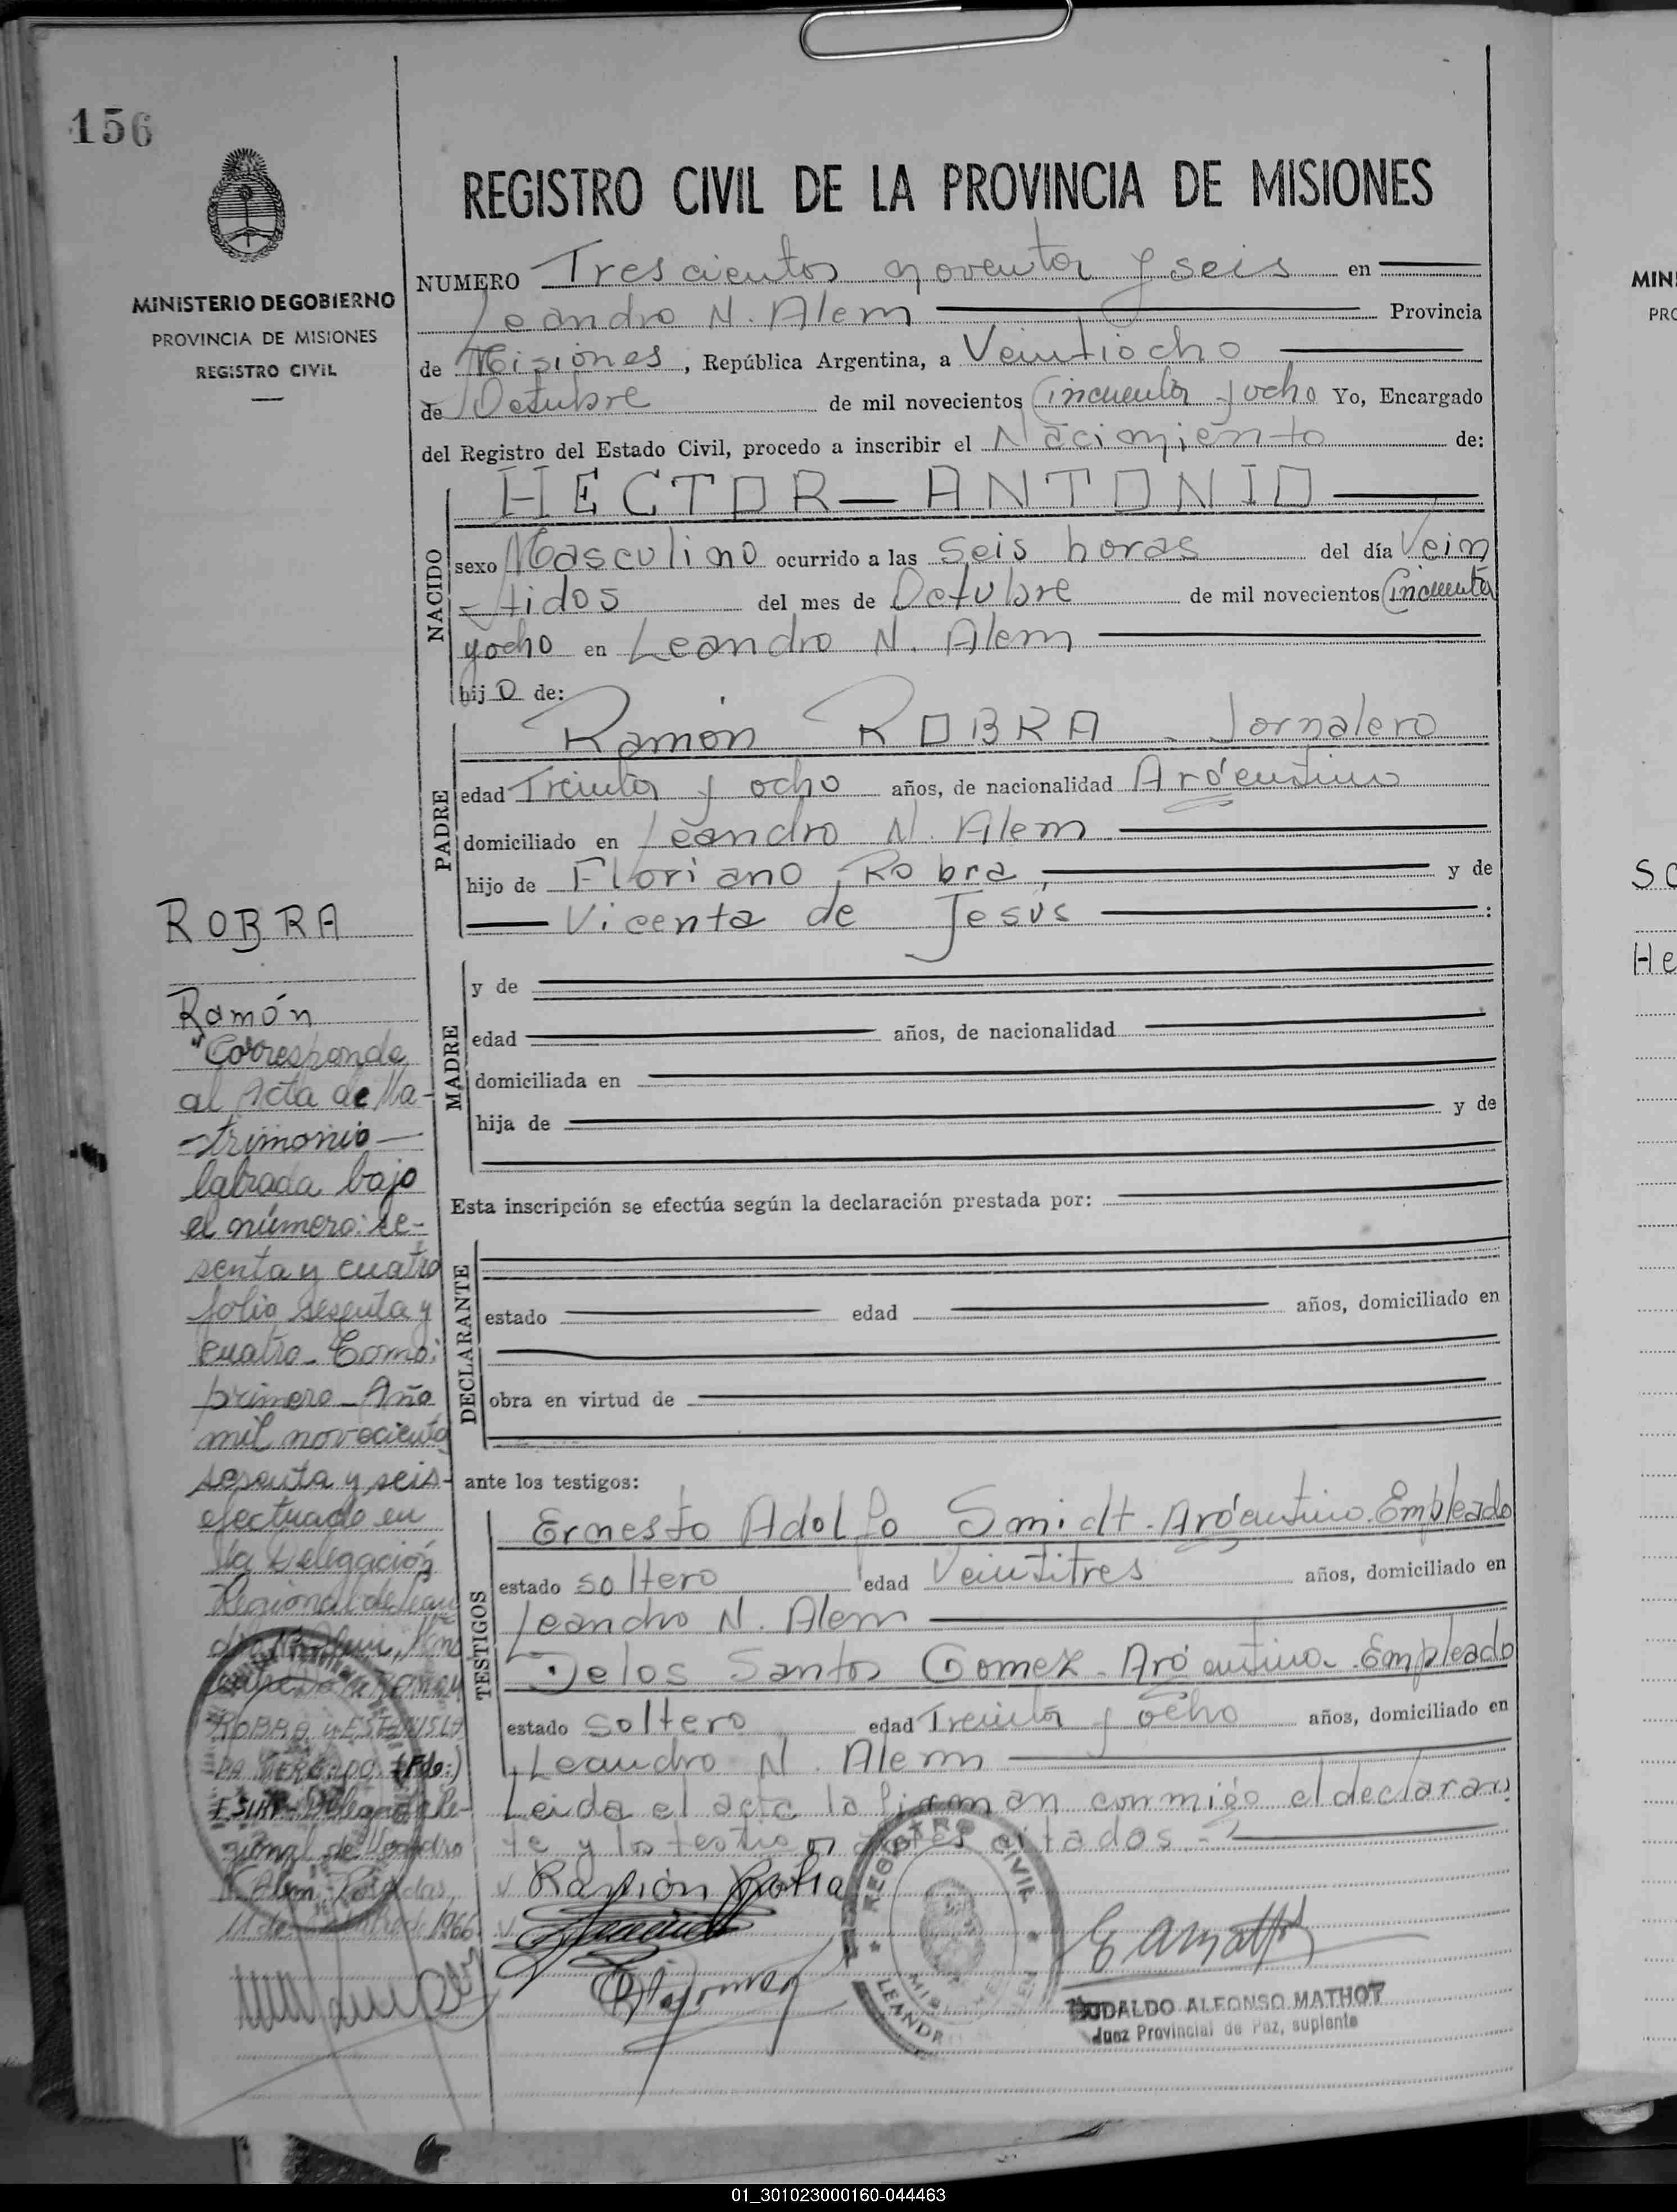 156
REGISTRO CIVIL DE LA PROVINCIA DE MISIONES
MINISTERIO DE GOBIERNO
PROVINCIA DE MISIONES
REGISTRO CIVIL
NUMERO Trescientos noventa y seis en
Leandro N. Alem Provincia
de Misiones, República Argentina, a Veintiocho
de Octubre de mil novecientos Cincuenta y ocho Yo, Encargado
del Registro del Estado Civil, procedo a inscribir el Nacimiento de:
NACIDO
HECTOR — ANTONIO
sexo Masculino ocurrido a las seis horas del día Vein
-tidos del mes de Octubre de mil novecientos Cincuenta
y ocho en Leandro N. Alem
hijo de:
PADRE
Ramón ROBRA - Jornalero
edad Treinta y ocho años, de nacionalidad Argentino
domiciliado en Leandro N. Alem
hijo de Floriano Robra, y de
Vicenta de Jesús :
MADRE
y de
edad años, de nacionalidad
domiciliada en
hija de y de
Esta inscripción se efectúa según la declaración prestada por:
DECLARANTE
estado edad años, domiciliado en
obra en virtud de
ante los testigos:
TESTIGOS
Ernesto Adolfo Smidt - Argentino. Empleado
estado soltero edad Veintitres años, domiciliado en
Leandro N. Alem
Delos Santos Gomez - Argentino - Empleado
estado soltero edad Treinta y ocho años, domiciliado en
Leandro N. Alem
Leida el acta la firman conmigo el declaran
te y los testigos antes citados.-
Ramón Robra
REGISTRO CIVIL
LEANDR
EUDALDO ALFONSO MATHOT
Juez Provincial de Paz, suplente
ROBRA
Ramón
"Corresponde
al Acta de Ma-
-trimonio-
labrada bajo
el número: se-
senta y cuatro
folio sesenta y
cuatro - Tomo:
primero - Año
mil novecientos
sesenta y seis-
efectuado en
la Delegación
Regional de Lean
dro N. Alem,
ROBRA y ESTANISLA
(Fdo:)
Delegado Re-
gional de Leandro
N. Alem - Posadas,
11 de 1966
MIN
PRO
So
He
01_301023000160-044463